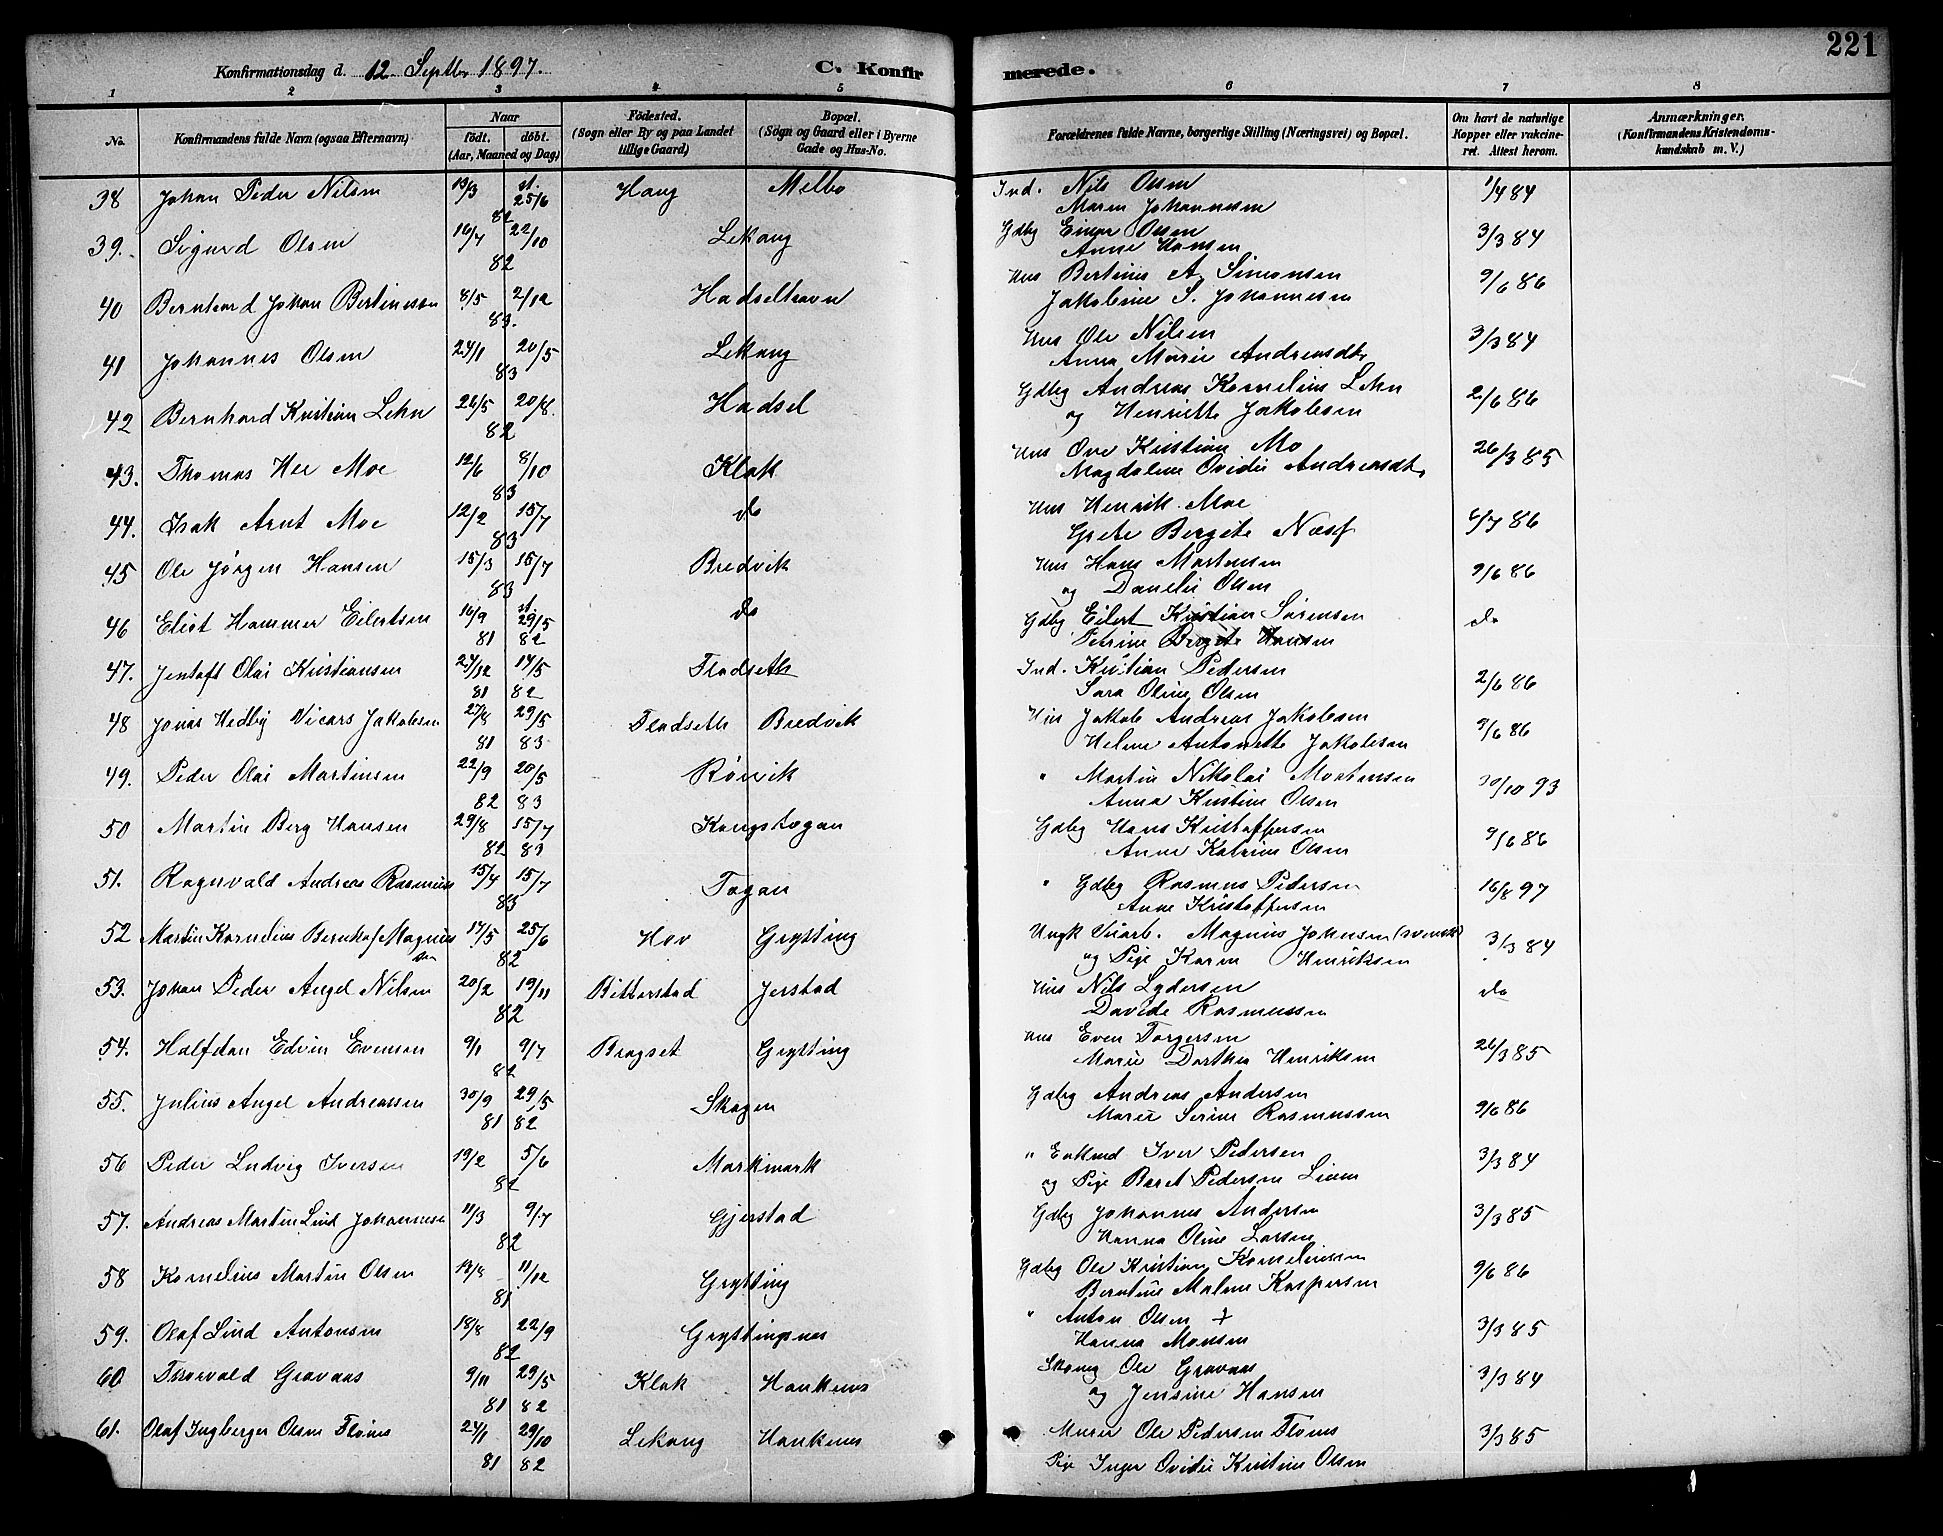 221
Konfirmationsdag d. 12 Septbr 1897. C. Konfirmerede.
1 2 3 4 5 6 7 8
No. Konfirmandens fulde Navn (ogsaa Efternavn) Naar født, døbt. (Aar, Maaned og Dag) Fødested. (Sogn eller By og paa Landet tillige Gaard) Bopæl. (Sogn og Gaard eller i Byerne Gade og Hus-No. Forældrenes fulde Navne, borgerlige Stilling (Næringsvei) og Bopæl. Om havt de naturlige Kopper eller vaccineret. Attest herom. Anmærkninger. (Konfirmandens Kristendomskundskab m. V.)
38 Johan Peder Nilsen 13/3 st. 25/6 82 Haug Melbo Ind. Nils Olsen 1/4 84
Maren Johannesen
39. Sigurd Olsen 16/7 22/10 82 Lekang Gdbg Einar Olsen 3/3 84
Anne Hansen
40 Bernhard Johan Bertinesson 8/5 2/12 83. Hadselhavn Hus Bertines A. Simonsen 9/6 86
Jakobine S. Johannesen
41 Johannes Olsen 24/1 20/5 83 Lekang Hus Ole Nilsen 3/3 84
Anna Marie Andreasdtr
42 Bernhard Kristian Lehn 26/5 20/8. 82 Hadsel Gdbg Andreas Kornelius Lehn 2/6 86
og Henriette Jakobsen
43. Thomas Her Moe 12/6 8/10 83 Klak Hus Ove Kristian Mo 26/3 85
Magdalene Ovidie Andreasdtr
44. Isak Arnt Moe 12/2 15/7 83 do Hus Henrik Moe 6/7 86
Grete Bergete Næss
45 Ole Jørgen Hansen 15/3 15/7 83 Bredvik Hus Hans Martensen 9/6 86
og Danelie Olsen
46 Eliot Hammer Eilertsen 16/9 81 st. 29/5 82 do Gdbg Eilert Kristian Sørensen do
Petrine Bergete Hansen
47. Jentoft Olai Kristiansen 24/12 81 14/5 82 Fladseth Ind. Kristian Pedersen 2/6 86
Sara Oline Olsen
48 Jonas Hedly Vicars Jakobsen 27/8 81 29/5 83 Fladseth Bredvik Hus Jakob Andreas Jakobsen 9/6 86
Helene Antonette Jakobsen
49. Peder Olai Martinsen 22/9 82 20/5 83 Rørvik " Martin Nikolai Mortensen 30/10 93
Anna Kristine Olsen
50 Martin Berg Hansen 29/8 82 15/7 83 Kongstogan Gdbg Hans Kristoffersen 9/6 86
Anne Katrine Olsen
51. Ragnvald Andreas Rasmus 15/4 15/7 83 Togan " Gdbg Rasmus Pedersen 16/8 97
Anne Kristoffersen
52 Martin Kornelius Bernhof Magnussen 17/5 25/6 82 Hov Grytting Ungk Magnus Johnsen (svensk) 3/3 84
og Pige Karen Henriksen
53. Johan Peder Angel Nilsen 20/2 19/11 82 Bitterstad Jerstad Hus Nils Lydersen do
Davide Rasmussen
54. Halfdan Edvin Evenson 9/1 9/7 82 Bragset Grytting Hus Even Torgersen 26/3 85
Marie Dorthea Henriksen
55. Julius Angel Andreassen 30/9 81 29/5 82 Skagen Gdbg Andreas Andersen 9/6 86
Marie Serine Rasmussen
56 Peder Ludvig Iversen 19/2 5/6 82 Markmark " Enkmd Iver Pedersen 3/3 84
og Pige Beret Pedersen Lien
57. Andreas Martin Lind Johannesen 11/3 9/7 82 Gjerstad Gdbg Johannes Andersen 3/3 85
Hanna Oline Larsen
58 Kornelius Martin Olsen 13/8 11/12 81 Grytting Gdbg Ole Kristian Korneliussen 9/6 86
Berntine Malene Kaspersen
59. Olaf Lind Antonsen 18/8 22/9 82 Gryttingsnes " Anton Olsen + 3/3 85
Hanna Monsen
60 Thorvald Gravaas 9/11 81 29/5 82 Klak Haukenes Ole Gravaas 3/3 84
og Jensine Hansen
61. Olaf Ingberger Olsen Flønes 24/1 81 29/10 82 Lekang Haukenes Murer Ole Pedersen Flønes 3/3 85
Pige Inger Ovidie Kristine Olsen